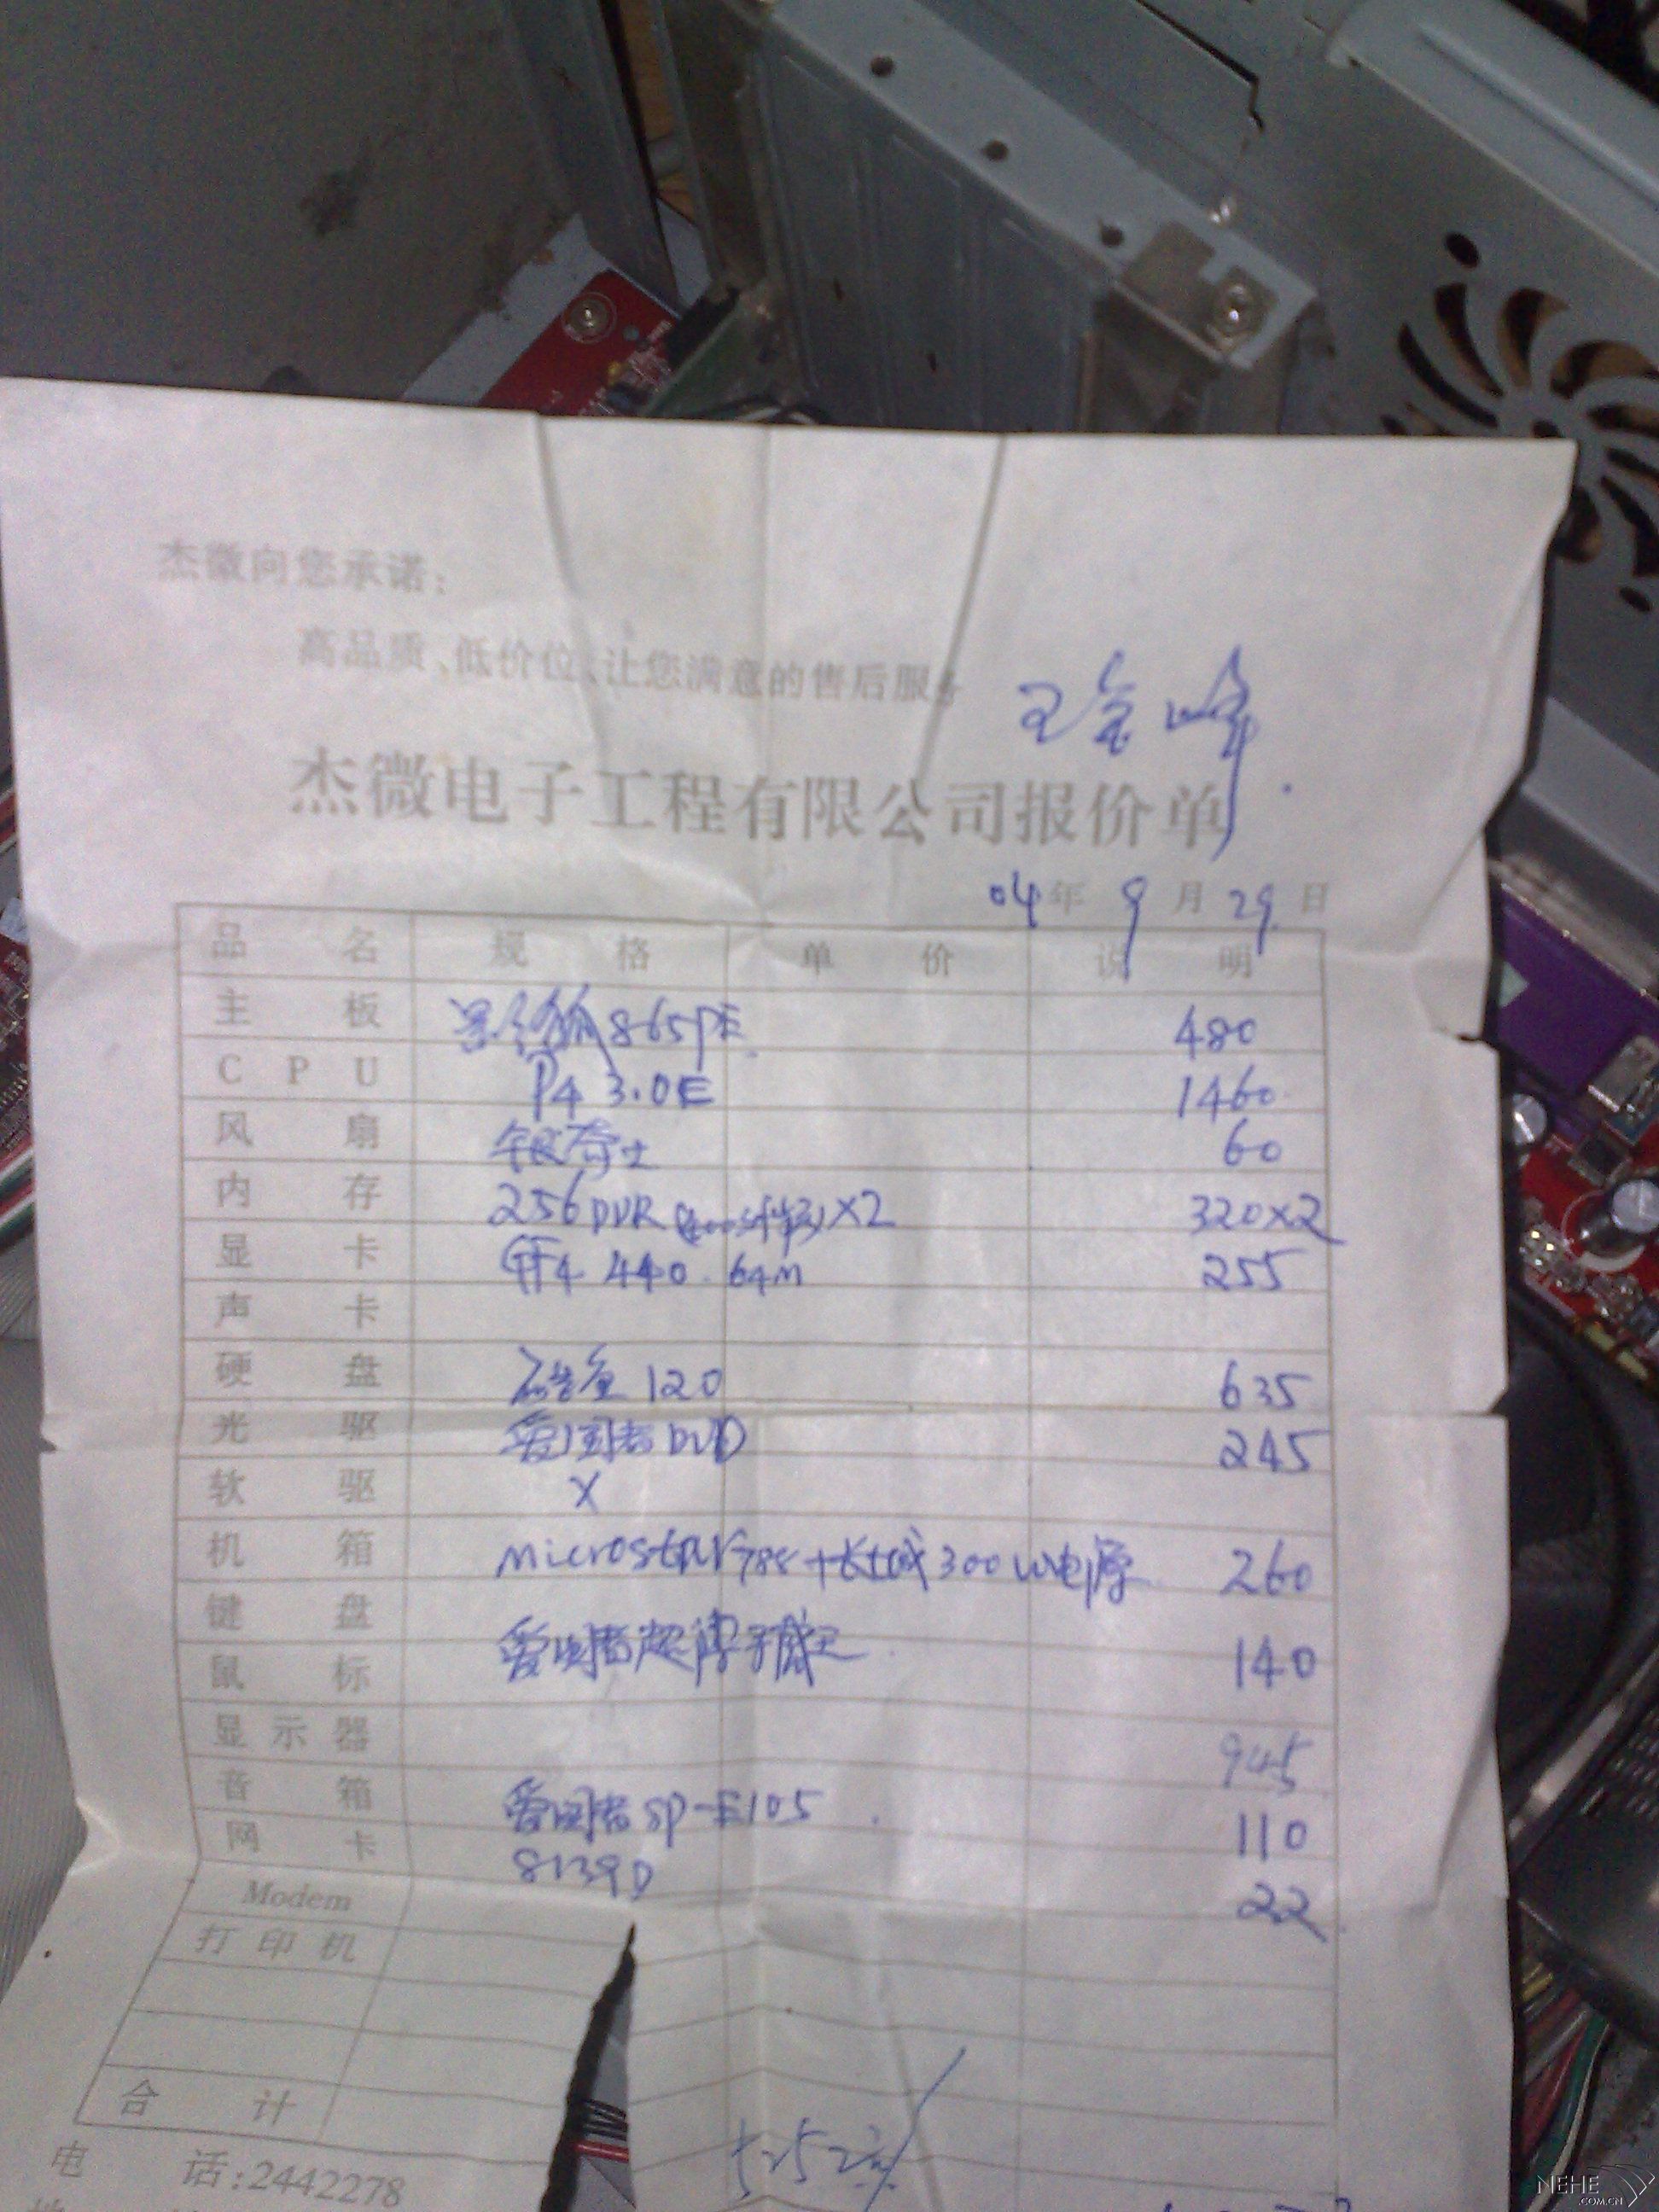 杰微向您承诺：
高品质、低价位、让您满意的售后服务
杰微电子工程有限公司报价单
04年 9月 29日
品名 规格 单价 说明
主板 865PE 480
CPU P4 3.0E 1460
风扇 银奇士 60
内存 256 DDR ×2 320×2
显卡 GF4 440 64M 255
声卡
硬盘 120 635
光驱 爱国者DVD 245
软驱 X
机箱 microstar 788+长城300W电源 260
键盘
鼠标 爱国者超薄手感王 140
显示器 945
音箱 爱国者SP-E105 110
网卡 8139D 22
Modem
打印机
合计 5252元
电话:2442278
NEHE
.COM.CN